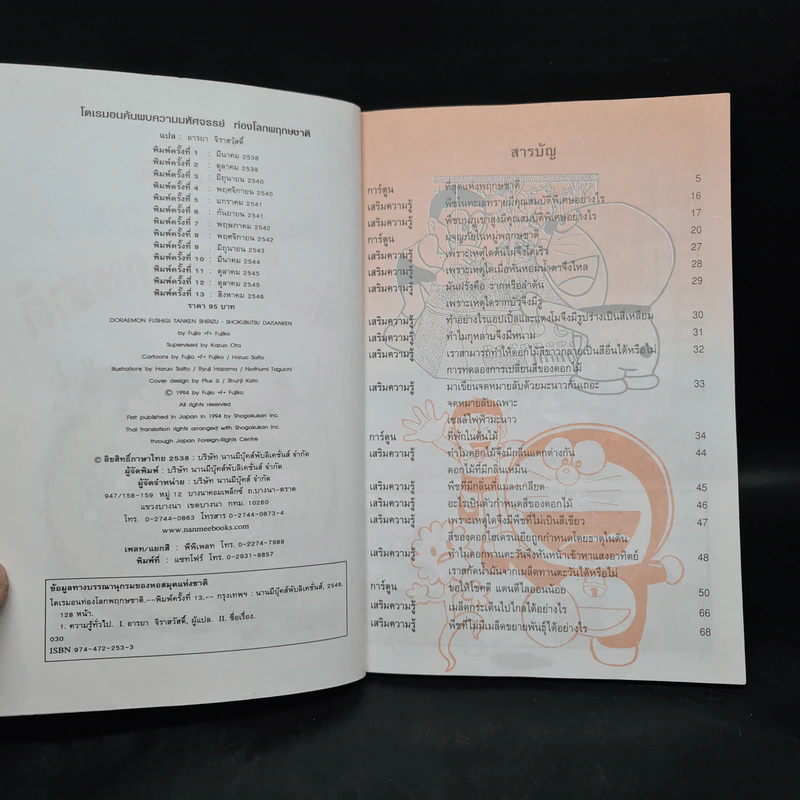 โดเรมอนค้นพบความมหัศจรรย์ ท่องโลกพฤกษชาติ
แปล : อารยา จิราสวัสดิ์
พิมพ์ครั้งที่ 1 : มีนาคม 2538
พิมพ์ครั้งที่ 2 : ตุลาคม 2539
พิมพ์ครั้งที่ 3 : มิถุนายน 2540
พิมพ์ครั้งที่ 4 : พฤศจิกายน 2540
พิมพ์ครั้งที่ 5 : มกราคม 2541
พิมพ์ครั้งที่ 6 : กันยายน 2541
พิมพ์ครั้งที่ 7 : พฤษภาคม 2542
พิมพ์ครั้งที่ 8 : พฤศจิกายน 2542
พิมพ์ครั้งที่ 9 : มิถุนายน 2543
พิมพ์ครั้งที่ 10 : มีนาคม 2544
พิมพ์ครั้งที่ 11 : ตุลาคม 2545
พิมพ์ครั้งที่ 12 : ตุลาคม 2545
พิมพ์ครั้งที่ 13 : สิงหาคม 2546
ราคา 95 บาท
DORAEMON FUSHIGI TANKEN SHIRIZU - SHOKUBUTSU DAITANKEN
by Fujio •F• Fujiko
Supervised by Kazuo Oita
Cartoons by Fujio •F• Fujiko / Haruo Saito
Illustrations by Haruo Saito / Ryuji Hazama / Norifumi Taguchi
Cover design by Plus α / Shunji Kato
© 1994 by Fujio •F• Fujiko
All rights reserved
First published in Japan in 1994 by Shogakukan Inc.
Thai translation rights arranged with Shogakukan Inc.
through Japan Foreign-Rights Centre
© ลิขสิทธิ์ภาษาไทย 2538 : บริษัท นานมีบุ๊คส์พับลิเคชั่นส์ จำกัด
ผู้จัดพิมพ์ : บริษัท นานมีบุ๊คส์พับลิเคชั่นส์ จำกัด
ผู้จัดจำหน่าย : บริษัท นานมีบุ๊คส์ จำกัด
947/158-159 หมู่ 12 บางนาคอมเพล็กซ์ ถ.บางนา-ตราด
แขวงบางนา เขตบางนา กทม. 10260
โทร. 0-2744-0863 โทรสาร 0-2744-0873-4
www.nanmeebooks.com
เพลท/แยกสี : พีพีเพลท โทร. 0-2274-7988
พิมพ์ที่ : แซทโฟร์ โทร. 0-2931-8857
ข้อมูลทางบรรณานุกรมของหอสมุดแห่งชาติ
โดเรมอนท่องโลกพฤกษชาติ.--พิมพ์ครั้งที่ 13.-- กรุงเทพฯ : นานมีบุ๊คส์พับลิเคชั่นส์, 2546.
128 หน้า.
1. ความรู้ทั่วไป. I. อารยา จิราสวัสดิ์, ผู้แปล. II. ชื่อเรื่อง.
030
ISBN 974-472-253-3
สารบัญ
การ์ตูน ที่สุดแห่งพฤกษชาติ 5
เสริมความรู้ พืชในทะเลทรายมีคุณสมบัติพิเศษอย่างไร 16
เสริมความรู้ พืชบนภูเขาสูงมีคุณสมบัติพิเศษอย่างไร 17
การ์ตูน ผจญภัยในหมู่พฤกษชาติ 20
เสริมความรู้ เพราะเหตุใดต้นไผ่จึงโตเร็ว 27
เสริมความรู้ เพราะเหตุใดเมื่อหั่นหอมน้ำตาจึงไหล 28
เสริมความรู้ มันฝรั่งคือ รากหรือลำต้น 29
เพราะเหตุใดรากบัวจึงมีรู
เสริมความรู้ ทำอย่างไรแอปเปิ้ลและแตงโมจึงมีรูปร่างเป็นสี่เหลี่ยม 30
เสริมความรู้ ทำไมกุหลาบจึงมีหนาม 31
เสริมความรู้ เราสามารถทำให้ดอกไม้สีขาวกลายเป็นสีอื่นได้หรือไม่ 32
การทดลองการเปลี่ยนสีของดอกไม้
เสริมความรู้ มาเขียนจดหมายลับด้วยมะนาวกันเถอะ 33
จดหมายลับเฉพาะ
เซลล์ไฟฟ้ามะนาว
การ์ตูน ที่พักในต้นไม้ 34
เสริมความรู้ ทำไมดอกไม้จึงมีกลิ่นแตกต่างกัน 44
ดอกไม้ที่มีกลิ่นเหม็น
เสริมความรู้ พืชที่มีกลิ่นที่แมลงเกลียด 45
เสริมความรู้ อะไรเป็นตัวกำหนดสีของดอกไม้ 46
เสริมความรู้ เพราะเหตุใดจึงมีพืชที่ไม่เป็นสีเขียว 47
สีของดอกไฮเดรนเยียถูกกำหนดโดยธาตุในดิน
เสริมความรู้ ทำไมดอกทานตะวันจึงหันหน้าเข้าหาแสงอาทิตย์ 48
เราสกัดน้ำมันจากเมล็ดทานตะวันได้หรือไม่
การ์ตูน ขอให้โชคดี แดนดีไลออนน้อย 50
เสริมความรู้ เมล็ดกระเด็นไปไกลได้อย่างไร 66
เสริมความรู้ พืชที่ไม่มีเมล็ดขยายพันธุ์ได้อย่างไร 68